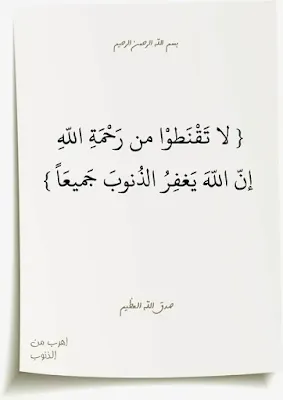 بسم الله الرحمن الرحيم
{ لا تَقْنَطوْا من رَحْمَةِ اللّهِ
إنّ اللّهَ يَغفِرُ الذُنوبَ جَميعَاً }
صدق الله العظيم
اهرب من
الذنوب